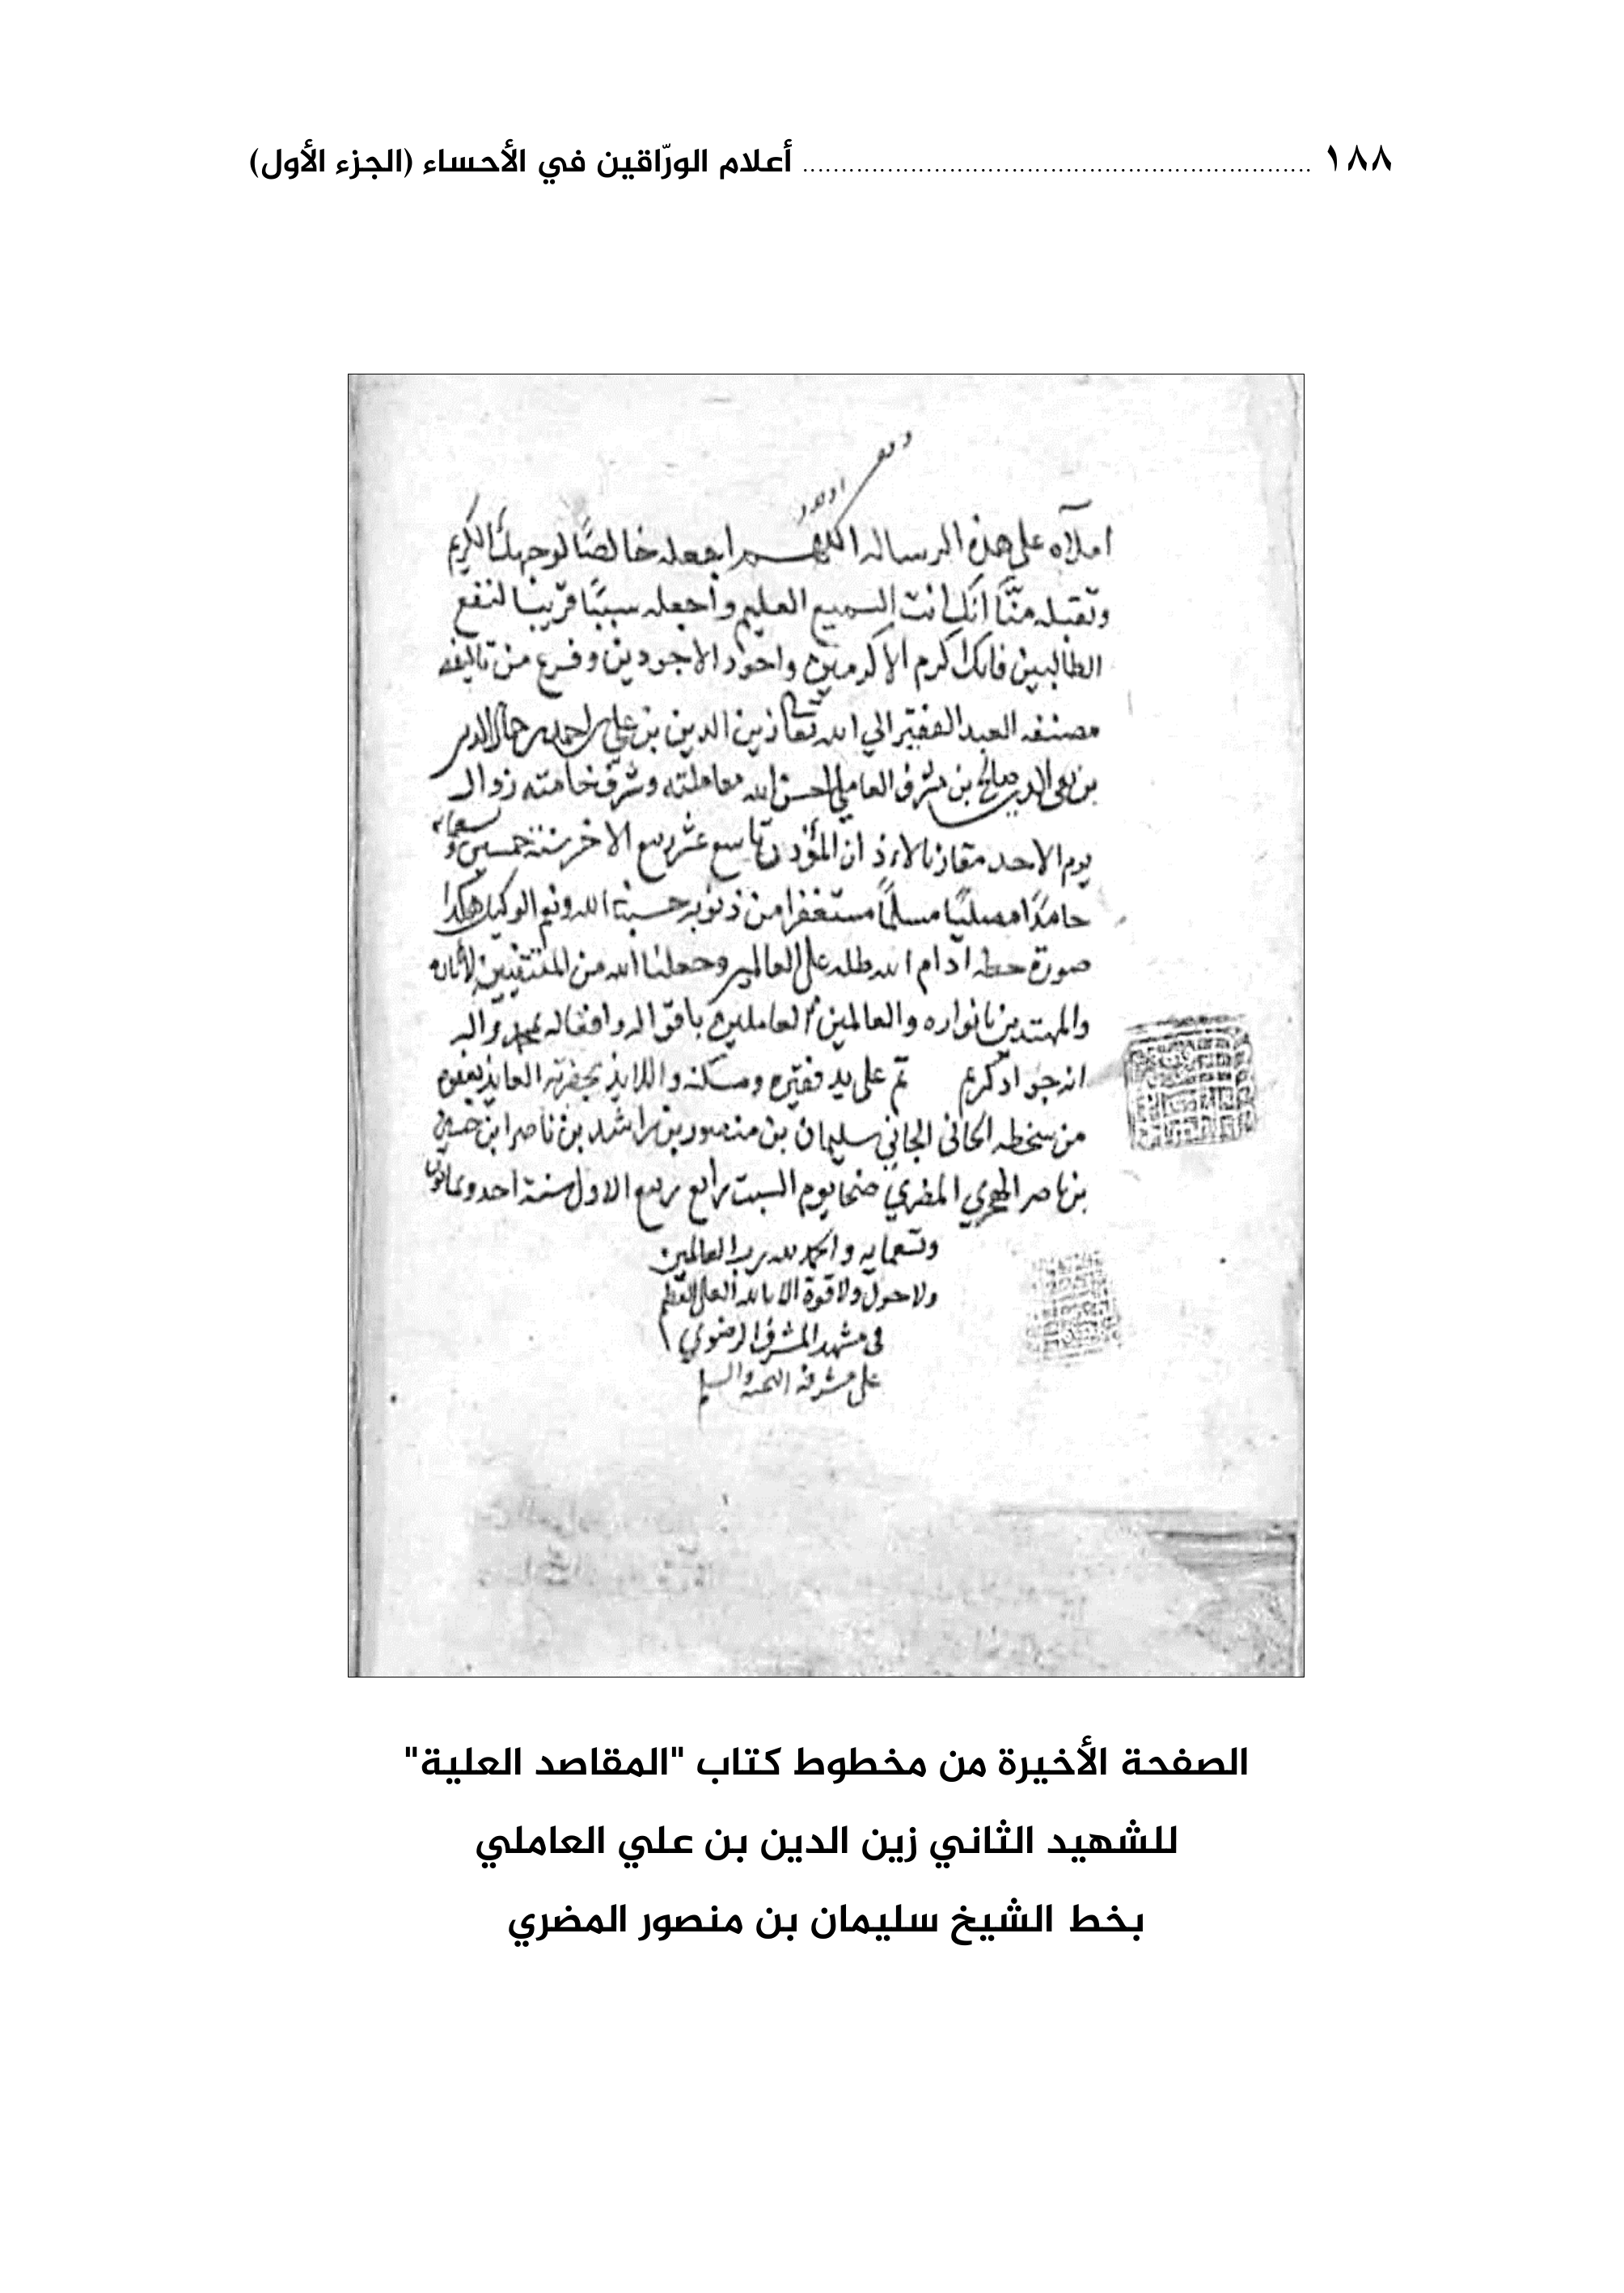 ١٨٨ ................................................................ أعلام الورّاقين في الأحساء (الجزء الأول)
املآه على هذه الرساله اللهم اجعله خالصًا لوجهك الكريم
وتقبله منّا انك انت السميع العليم واجعله سببًا قريبا لنفع
الطالبين فانك اكرم الاكرمين واجود الاجودين وفرغ من تاليفه
مصنفه العبد الفقير الي الله تعالى زين الدين بن علي بن احمد بن جمال الدين
بن تقي الدين صالح بن مشرف العاملي احسن الله معاملته وشرّف خاتمته زوال
يوم الاحد مقارنا لاذان المؤذن تاسع عشر ربيع الاخر سنة خمسين و تسعمايه
حامدًا مصليًا مسلمًا مستغفرا من ذنوبه حسبنا الله ونعم الوكيل هكذا
صورة خطه ادام الله ظله على العالمين وجعلنا الله من المقتفين لاثاره
والمهتدين بانواره والعالمين العاملين باقواله وافعاله بمحمد واله
انه جواد كريم تم على يد فقيره ومسكنه واللايذ بحضرته العايذ بعفوه
من سخطه الجاني سليمان بن منصور بن راشد بن ناصر ابن حسين
بن ناصر الهجري المضري ضحا يوم السبت رابع ربيع الاول سنة احد وثمانون
وتسعمايه والحمد لله رب العالمين
ولا حول ولا قوة الا بالله العلي العظيم
في مشهد المشرف الرضوي
على مشرفه التحيه والسلم
الصفحة الأخيرة من مخطوط كتاب "المقاصد العلية"
للشهيد الثاني زين الدين بن علي العاملي
بخط الشيخ سليمان بن منصور المضري